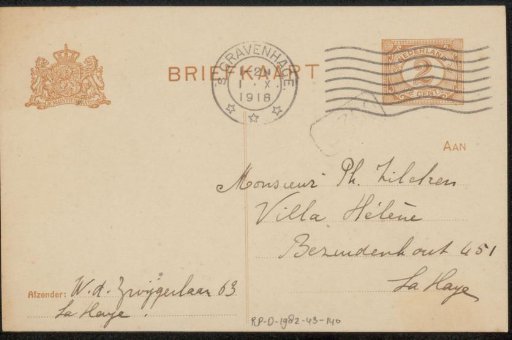 BRIEFKAART
'S GRAVENHAGE
1 · X.
1918
NEDERLAND
2
CENT
AAN
Monsieur Ph. Zilcken
Villa Hélène
Bezuidenhout 451
La Haye
Afzender: W. d. Zwijgerlaan 63
La Haye.
RP-D-1982-43-140